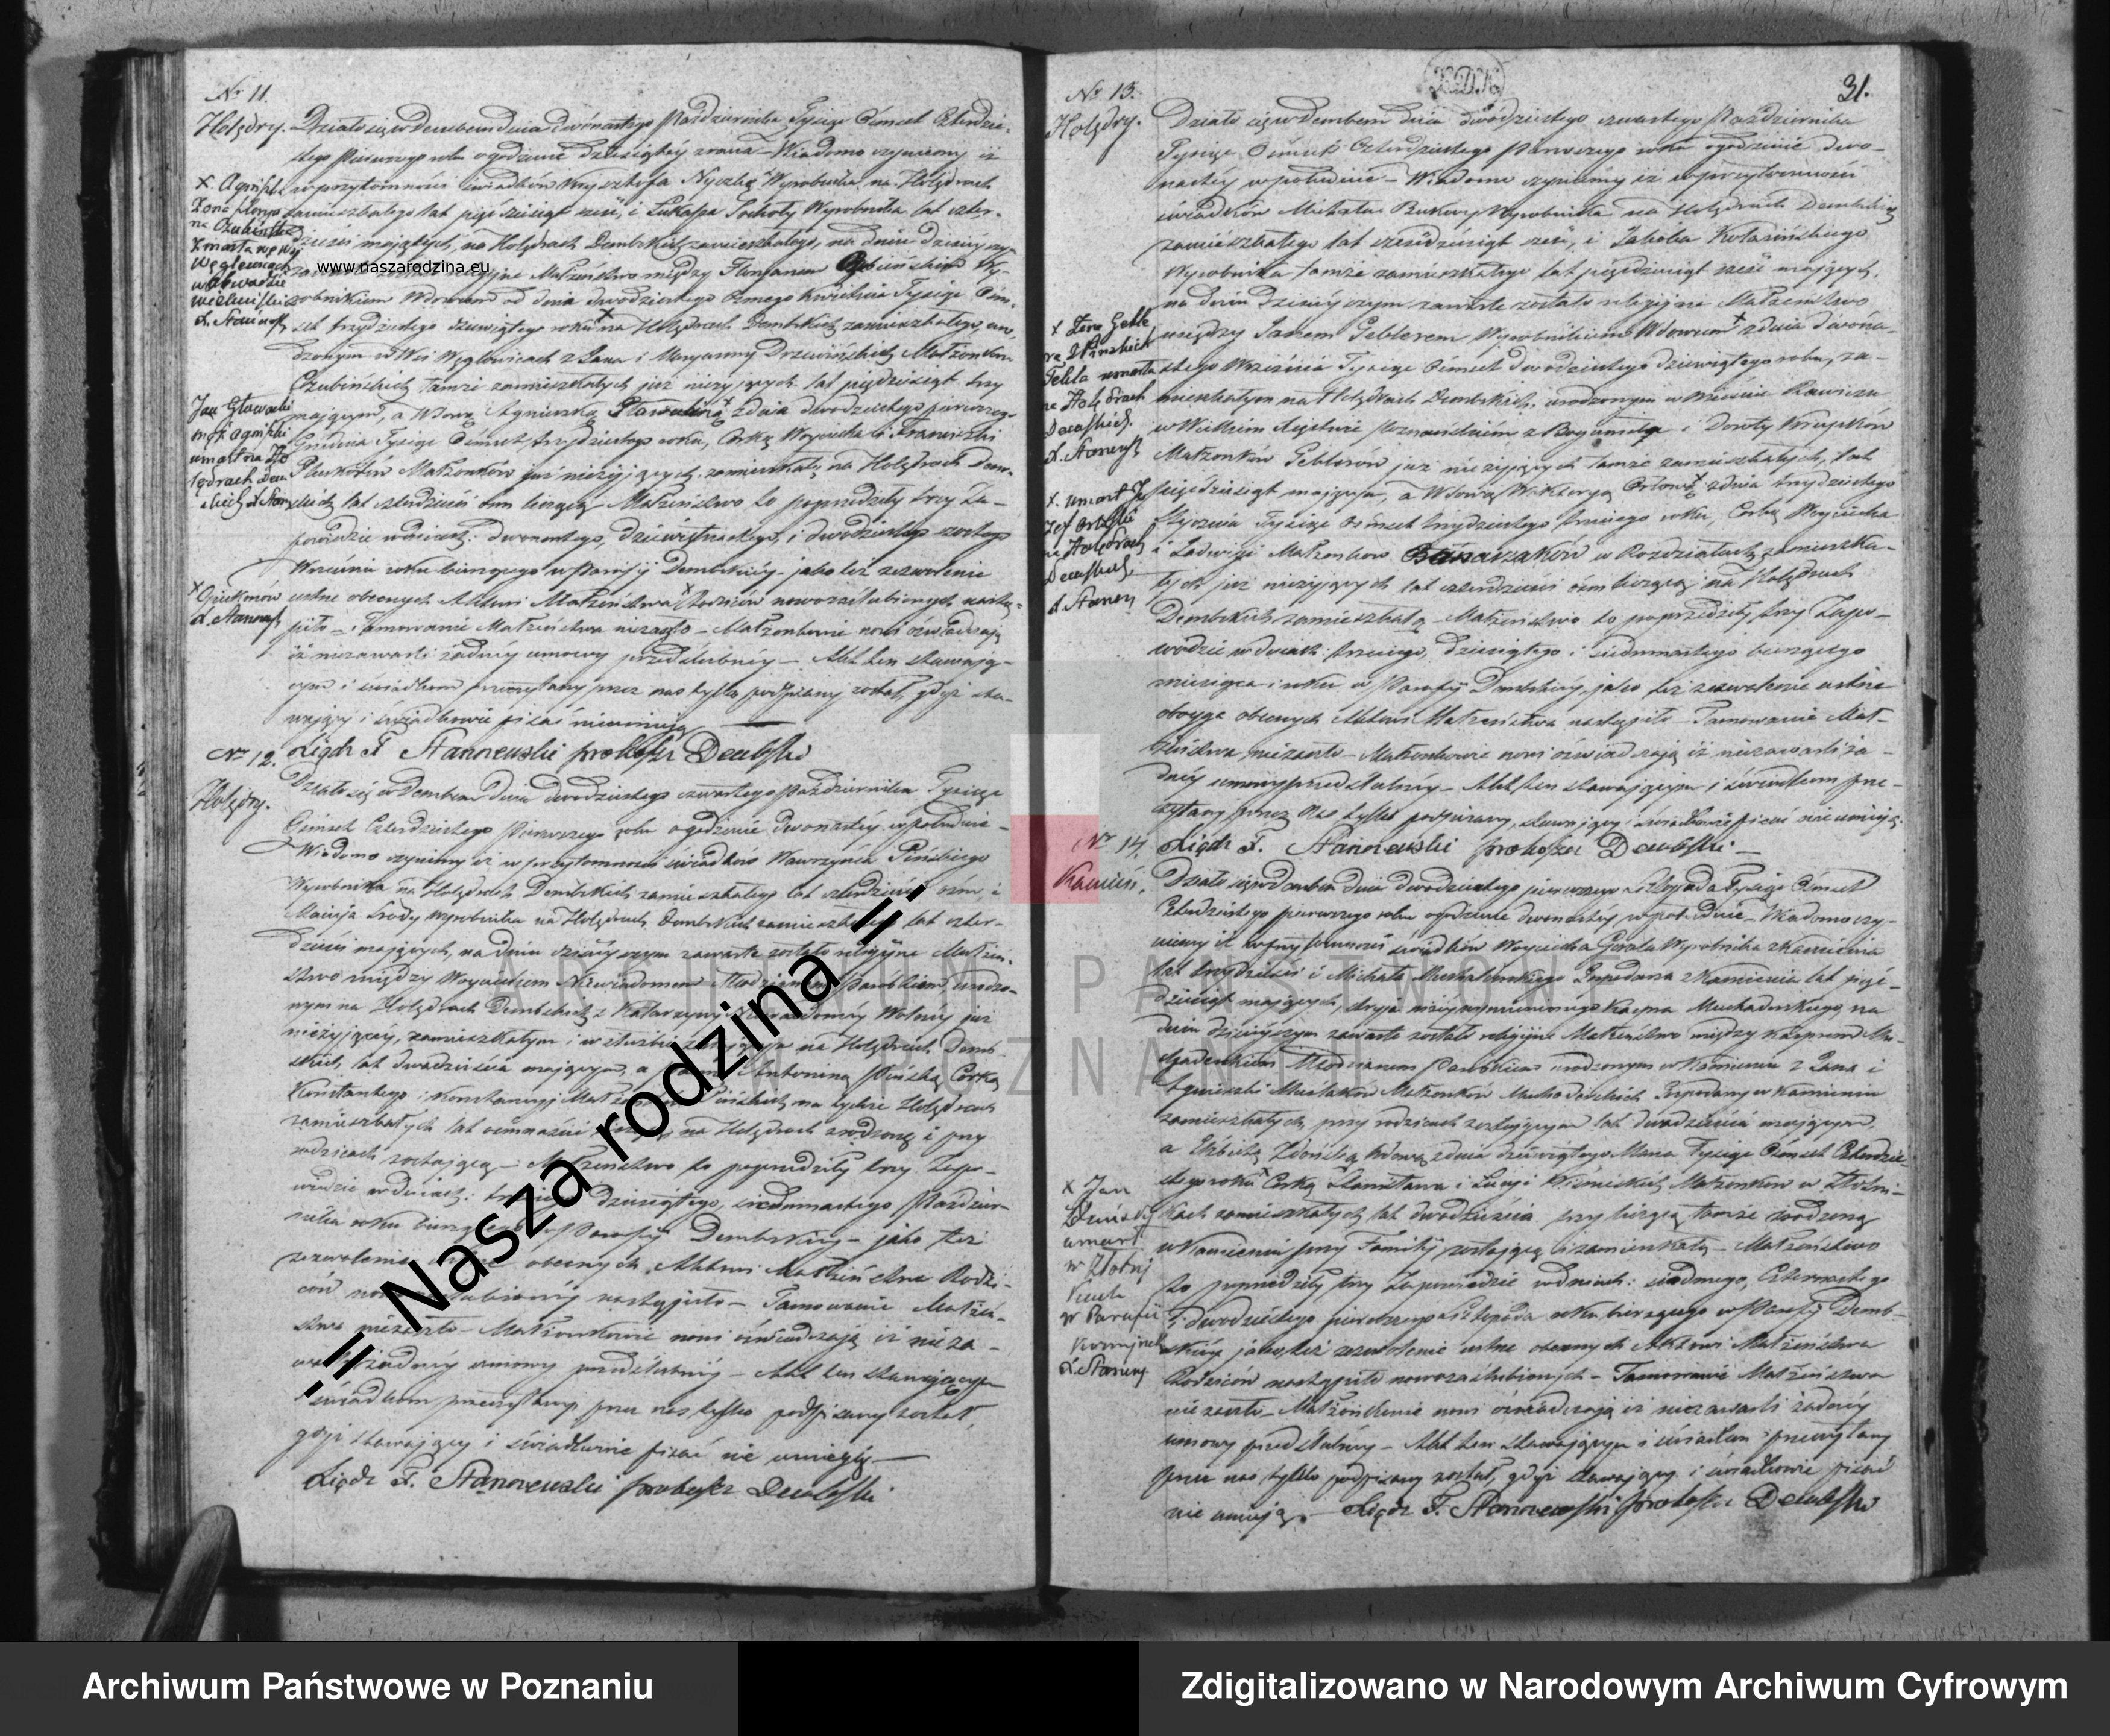 No 11.
Holędry.
Działo się w Dembem dnia dwónastego Października Tysiąc Ośmset Czterdzie-
stego Pierwszego roku o godzinie dziesiątey zrana – Wiadomo czyniemy iż
w przytomności świadków Krysztofa Wyrobnika na Holędrach
zamieszkałego lat pięć dziesiąt sześć, i Łukasza Sochoty Wyrobnika lat czter-
dzieści maiących, na Holędrach Dembskich zamieszkałego, na dniu dzisieyszym
religijne Małżeństwo między Floryanem Wy-
robnikiem Wdowcem od dnia dwudziestego Osmego Kwietnia Tysiąc Ośm-
set trzydziestego dziewiątego roku x na Holędrach Dembskich zamieszkałego, uro-
dzonym we Wsi Węglewicach z Jana i Maryanny Małżonków
Czubińskich tamże zamieszkałych już nieżyiących lat pięćdziesiąt trzy
maiącym, a Wdową Agnieszką x z dnia dwudziestego pierwszego
Grudnia Tysiąc Ośmset trzydziestego roku, Córką Woyciecha i Franciszki
Małżonków już nieżyiących, zamieszkałą na Holędrach Dem-
skich lat czterdzieści ośm liczącą. Małżeństwo to poprzedziły trzy Za-
powiedzie w dniach: dwunastego, dziewiętnastego, i dwudziestego szóstego
Września roku bieżącego w Parafij Dembskiey – jako też zezwolenie
ustne obecnych Aktowi Małżeństwa x Rodziców nowozaślubionych nastą-
piło – Tamowanie Małżeństwa nizaszło – Małżonkowie nowi oświadczaią
iż niezawarli żadney umowy przedślubney – Akt ten stawaią-
cym i świadkom przeczytany przez nas tylko podpisany został, gdyż sta-
waiący i świadkowie pisać nieumieią
Xiądz F. Stanowski proboszcz Dembski
x Agnieszka
Żona Florya
na Czubińskiego
Zmarła we Wsi
Węglewicach
w Obwodzie
Wieluńskim
X. Stanowski
Jan Gławacki
mąż Agnieszki
umarł na Ho
lędrach Dem
skich X Stan
x Opiekunów
X. Stanowski
No 12.
Holędry.
Działo się w Dembem dnia dwudziestego czwartego Października Tysiąc
Ośmset Czterdziestego Pierwszego roku o godzinie dwunastey w południe –
Wiadomo czyniemy iż w przytomności świadków Wawrzyńca Pińskiego
Wyrobnika na Holędrach Dembskich zamieszkałego lat czterdzieści ośm, i
Macieja Środy Wyrobnika na Holędrach Dembskich zamieszkałego lat czter-
dzieści maiących, na dniu dzisieyszym zawarte zostało religijne Małżeń-
stwo między Woyciechem Niewiadomem Młodzianem Parobkiem, urodzo-
nym na Holędrach Dembskich z Katarzyny Niewiadomey Wolney już
nieżyiącey, zamieszkałym i w służbie na Holędrach Demb-
skich, lat dwadzieścia maiącym, a Panną Antoniną Pińską Córką
Konstantego i Konstancyi Pińskich na tychże Holędrach
zamieszkałych lat ośmnaście na Holędrach zrodzoną i przy
rodzicach zostaiącą – Małżeństwo to poprzedziły trzy Zapo-
wiedzie w dniach: dziesiątego, siedmnastego Paździer-
nika roku bieżącego w Parafij Dembskiey – jako też
zezwolenie obecnych Aktowi Małżeństwa Rodzi-
ców nastąpiło – Tamowanie Małżeń-
stwa niezaszło – Małżonkowie nowi oświadczaią iż nieza-
warli żadney umowy przedślubney – Akt ten stawaiącym
i świadkom przeczytany przez nas tylko podpisany został,
gdyż stawaiący i świadkowie pisać nie umieią –
Xiądz F. Stanowski proboszcz Dembski
31.
No 13.
Holędry.
Działo się w Dembem dnia dwudziestego czwartego Października
Tysiąc Ośmset Czterdziestego Pierwszego roku o godzinie dwu-
nastey w południe – Wiadomo czyniemy iż w przytomności
świadków Michała Wyrobnika na Holędrach Dembskich
zamieszkałego lat sześćdziesiąt sześć, i Jakóba Kołasińskiego
Wyrobnika tamże zamieszkałego lat pięćdziesiąt sześć maiących,
na dniu dzisieyszym zawarte zostało religijne Małżeństwo
między Janem Geblerem Wyrobnikiem Wdowcem x z dnia dwóna-
stego Września Tysiąc Ośmset dwudziestego dziewiątego roku, za-
mieszkałym na Holędrach Dembskich, urodzonym w Mieście Rawiczu
w Wielkim Xięstwie Poznańskiem z Bogumiła i Doroty
Małżonków Geblerów już nieżyiących tamże zamieszkałych, lat
pięćdziesiąt maiącym, a Wdową Wiktoryą Orłową x z dnia trzydziestego
Stycznia Tysiąc Ośmset trzydziestego trzeciego roku, Córką Woyciecha
i Jadwigi Małżonków Banaszaków w Rozdziałach zamieszka-
łych już nieżyiących lat czterdzieści ośm liczącą na Holędrach
Dembskich zamieszkałą – Małżeństwo to poprzedziły trzy Zapo-
wiedzie w dniach: trzeciego, dziesiątego i siedmnastego bieżącego
miesiąca i roku w Parafij Dembskiey, jako też zezwolenie ustne
oboyga obecnych Aktowi Małżeństwa nastąpiło – Tamowanie Mał-
żeństwa niezaszło – Małżonkowie nowi oświadczaią iż niezawarli ża-
dney umowy przedślubney – Akt ten stawaiącym i świadkom prze-
czytany przez Nas tylko podpisany, stawaiący i świadkowie pisać nie umieią.
Xiądz F. Stanowski proboszcz Dembski –
x Żona Geble
ra
Tekla umarła
na Holędrach
Dembskich.
X. Stanowski
x. umarł Jó
zef Orłoski
na Holędrach
Dembskich
X. Stanow
No 14.
Kamień.
Działo się w Dembem dnia dwudziestego pierwszego Listopada Tysiąc Ośmset
Czterdziestego pierwszego roku o godzinie dwunastey w południe – Wiadomo czy-
niemy iż w przytomności świadków Woyciecha Wyrobnika z Kamienia
lat trzydzieści i Michała Muchadorskiego Gospodarza z Kamienia lat pięć-
dziesiąt maiących, stryja niżej wymienionego Kacpra Muchadorskiego, na
dniu dzisieyszym zawarte zostało religijne Małżeństwo między Kacprem Mu-
chadorskim Młodzianem Parobkiem urodzonym w Kamieniu z Jana i
Agnieszki Małżonków Muchodorskich Gospodarzy w Kamieniu
zamieszkałych, przy rodzicach zostaiącym lat dwadzieścia maiącym,
a Elżbietą Zdońską Wdową z dnia dziewiątego Marca Tysiąc Ośmset Czterdzie-
stego roku x Córką Stanisława i Łucyi Małżonków w Złotni-
kach zamieszkałych lat dwadzieścia trzy liczącą tamże zrodzoną
w Kamieniu przy Familij zostaiącą i zamieszkałą – Małżeństwo
to poprzedziły trzy Zapowiedzie w dniach: siódmego, Czternastego
i dwudziestego pierwszego Listopada roku bieżącego w Parafij Demb-
skiey jako też zezwolenie ustne obecnych Aktowi Małżeństwa
Rodziców nastąpiło nowozaślubionych – Tamowanie Małżeństwa
nie zaszło – Małżonkowie nowi oświadczaią iż niezawarli żadney
umowy przedślubney – Akt ten stawaiącym i świadkom przeczytany
przez nas tylko podpisany został, gdyż stawaiący i świadkowie pisać
nie umieią. – Xiądz F. Stanowski proboszcz Dembski
x Jan
Zdoński
umarł
w Złotni
kach
w Parafii
X. Stanow
www.naszarodzina.eu
-:| Nasza rodzina |:-
ARCHIWUM PAŃSTWOWE
W POZNANIU
Archiwum Państwowe w Poznaniu
Zdigitalizowano w Narodowym Archiwum Cyfrowym